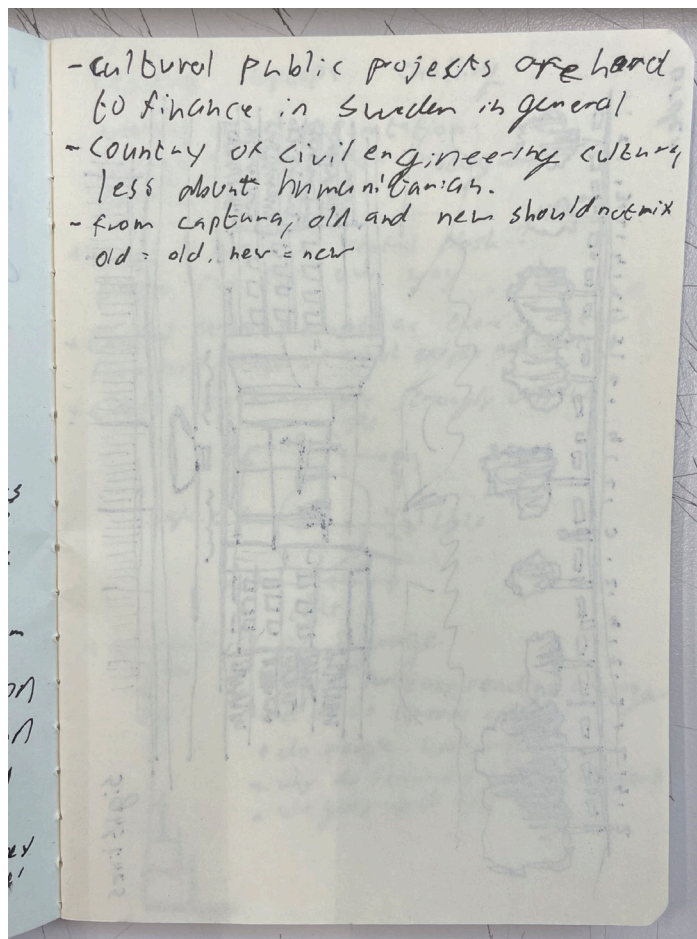 - cultural public projects are hard
to finance in Sweden in general
- Country of civil engineering culture,
less about humanitarian.
- from captura, old and new should not mix
old = old, new = new